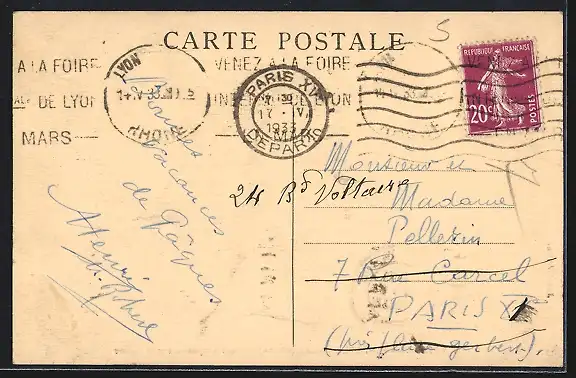 CARTE POSTALE
A LA FOIRE
DE LYON
MARS
LYON
RHONE
VENEZ A LA FOIRE
INTERNle DE LYON
PARIS XV
17 - IV
1933
DEPART
REPUBLIQUE FRANÇAISE
20c
POSTES
S
Bonnes
vacances
de Pâques
Henri
Monsieur et
Madame
Pellerin
24 Bd Voltaire
7 Rue Carcel
PARIS